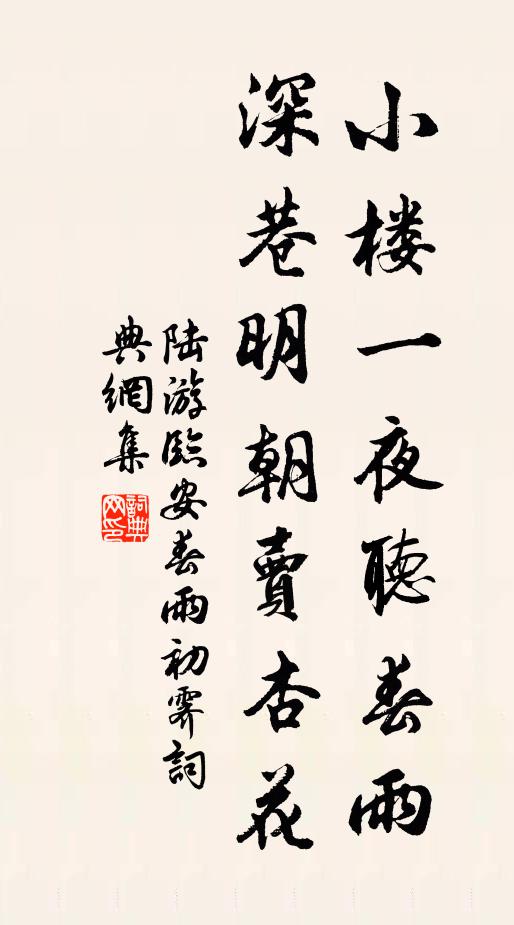 小楼一夜聽春雨
深巷明朝賣杏花
陆游臨安春雨初霁詞
典網集
詞典网印